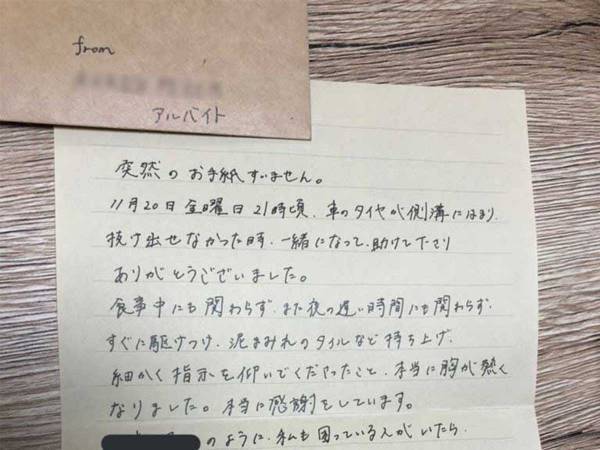 from
アルバイト
突然のお手紙すいません。
11月20日金曜日21時頃、車のタイヤが側溝にはまり、
抜け出せなかった時、一緒になって、助けて下さり
ありがとうございました。
食事中にも関わらず、また夜の遅い時間にも関わらず、
すぐに駆けつけ、泥まみれのタイルなど持ち上げ、
細かく指示を仰いでくださったこと、本当に胸が熱く
なりました。本当に感謝をしています。
のように、私も困っている人がいたら、